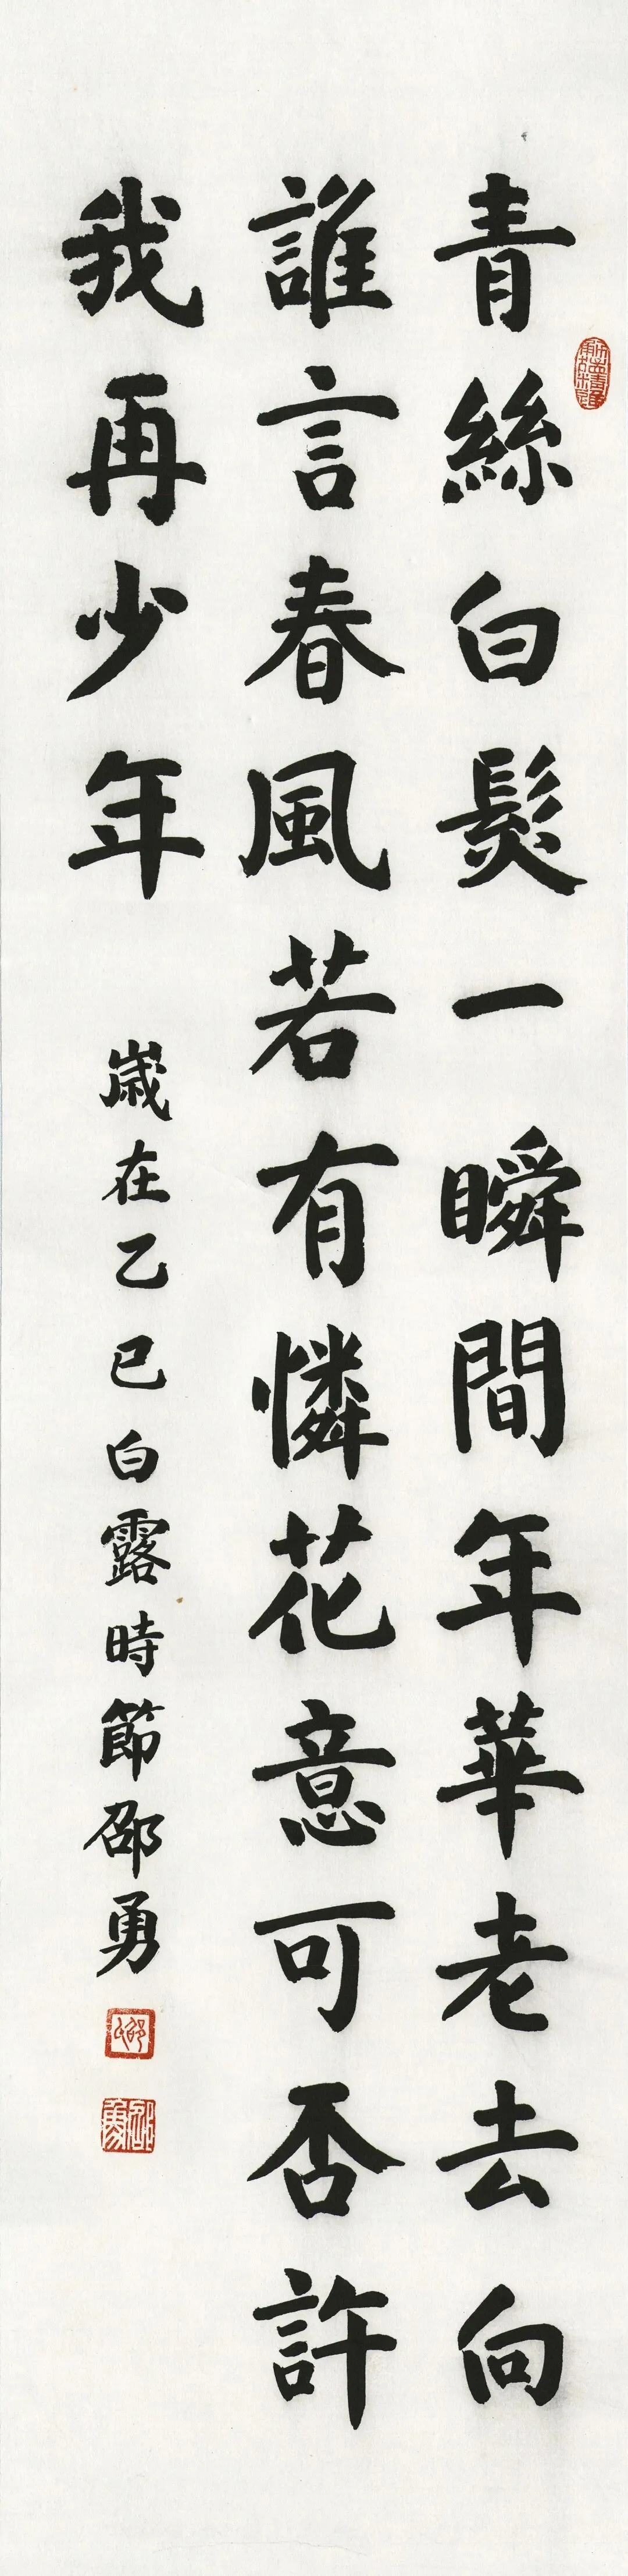 青絲白髮一瞬間年華老去向
誰言春風若有憐花意可否許
我再少年
歲在乙巳白露時節邵勇
邵勇